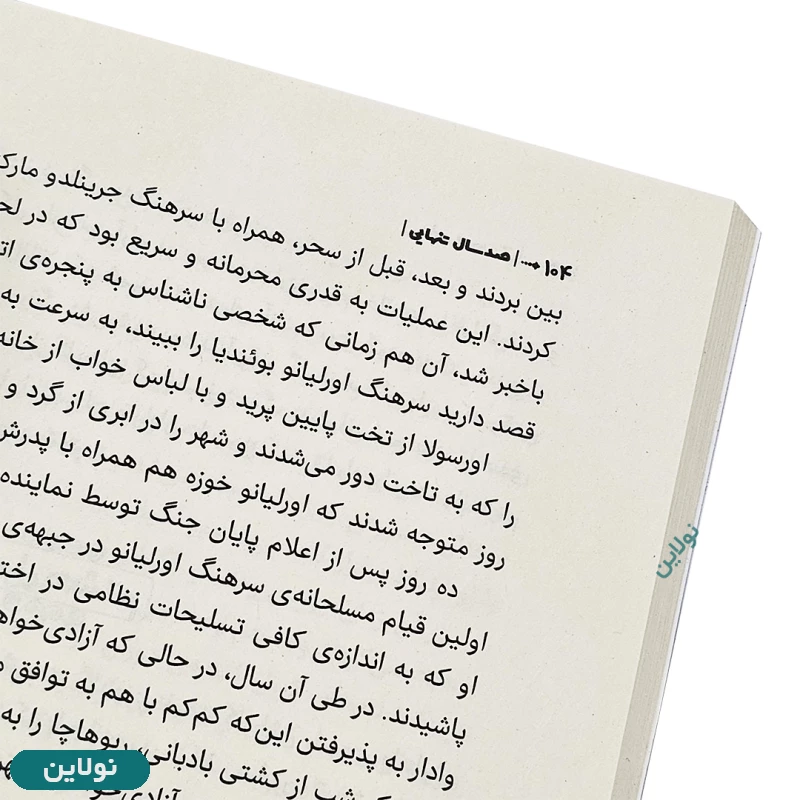 ۱۰۴ | صد سال تنهایی |
بین بردند و بعد، قبل از سحر، همراه با سرهنگ جرینلدو
کردند. این عملیات به قدری محرمانه و سریع بود که در
باخبر شد، آن هم زمانی که شخصی ناشناس به پنجره‌ی
قصد دارید سرهنگ اورلیانو بوئندیا را ببیند، به سرعت به
اورسولا از تخت پایین پرید و با لباس خواب از خانه
را که به تاخت دور می‌شدند و شهر را در ابری از گرد و
روز متوجه شدند که اورلیانو خوزه هم همراه با پدرش
ده روز پس از اعلام پایان جنگ توسط نماینده
اولین قیام مسلحانه‌ی سرهنگ اورلیانو در جبهه‌ی
او که به اندازه‌ی کافی تسلیحات نظامی در
پاشیدند. در طی آن سال، در حالی که
وادار به پذیرفتن این‌که کم‌کم با هم به توافق
شب از کشتی بادبانی، ریوهاچا را به
نولاین
نولاین